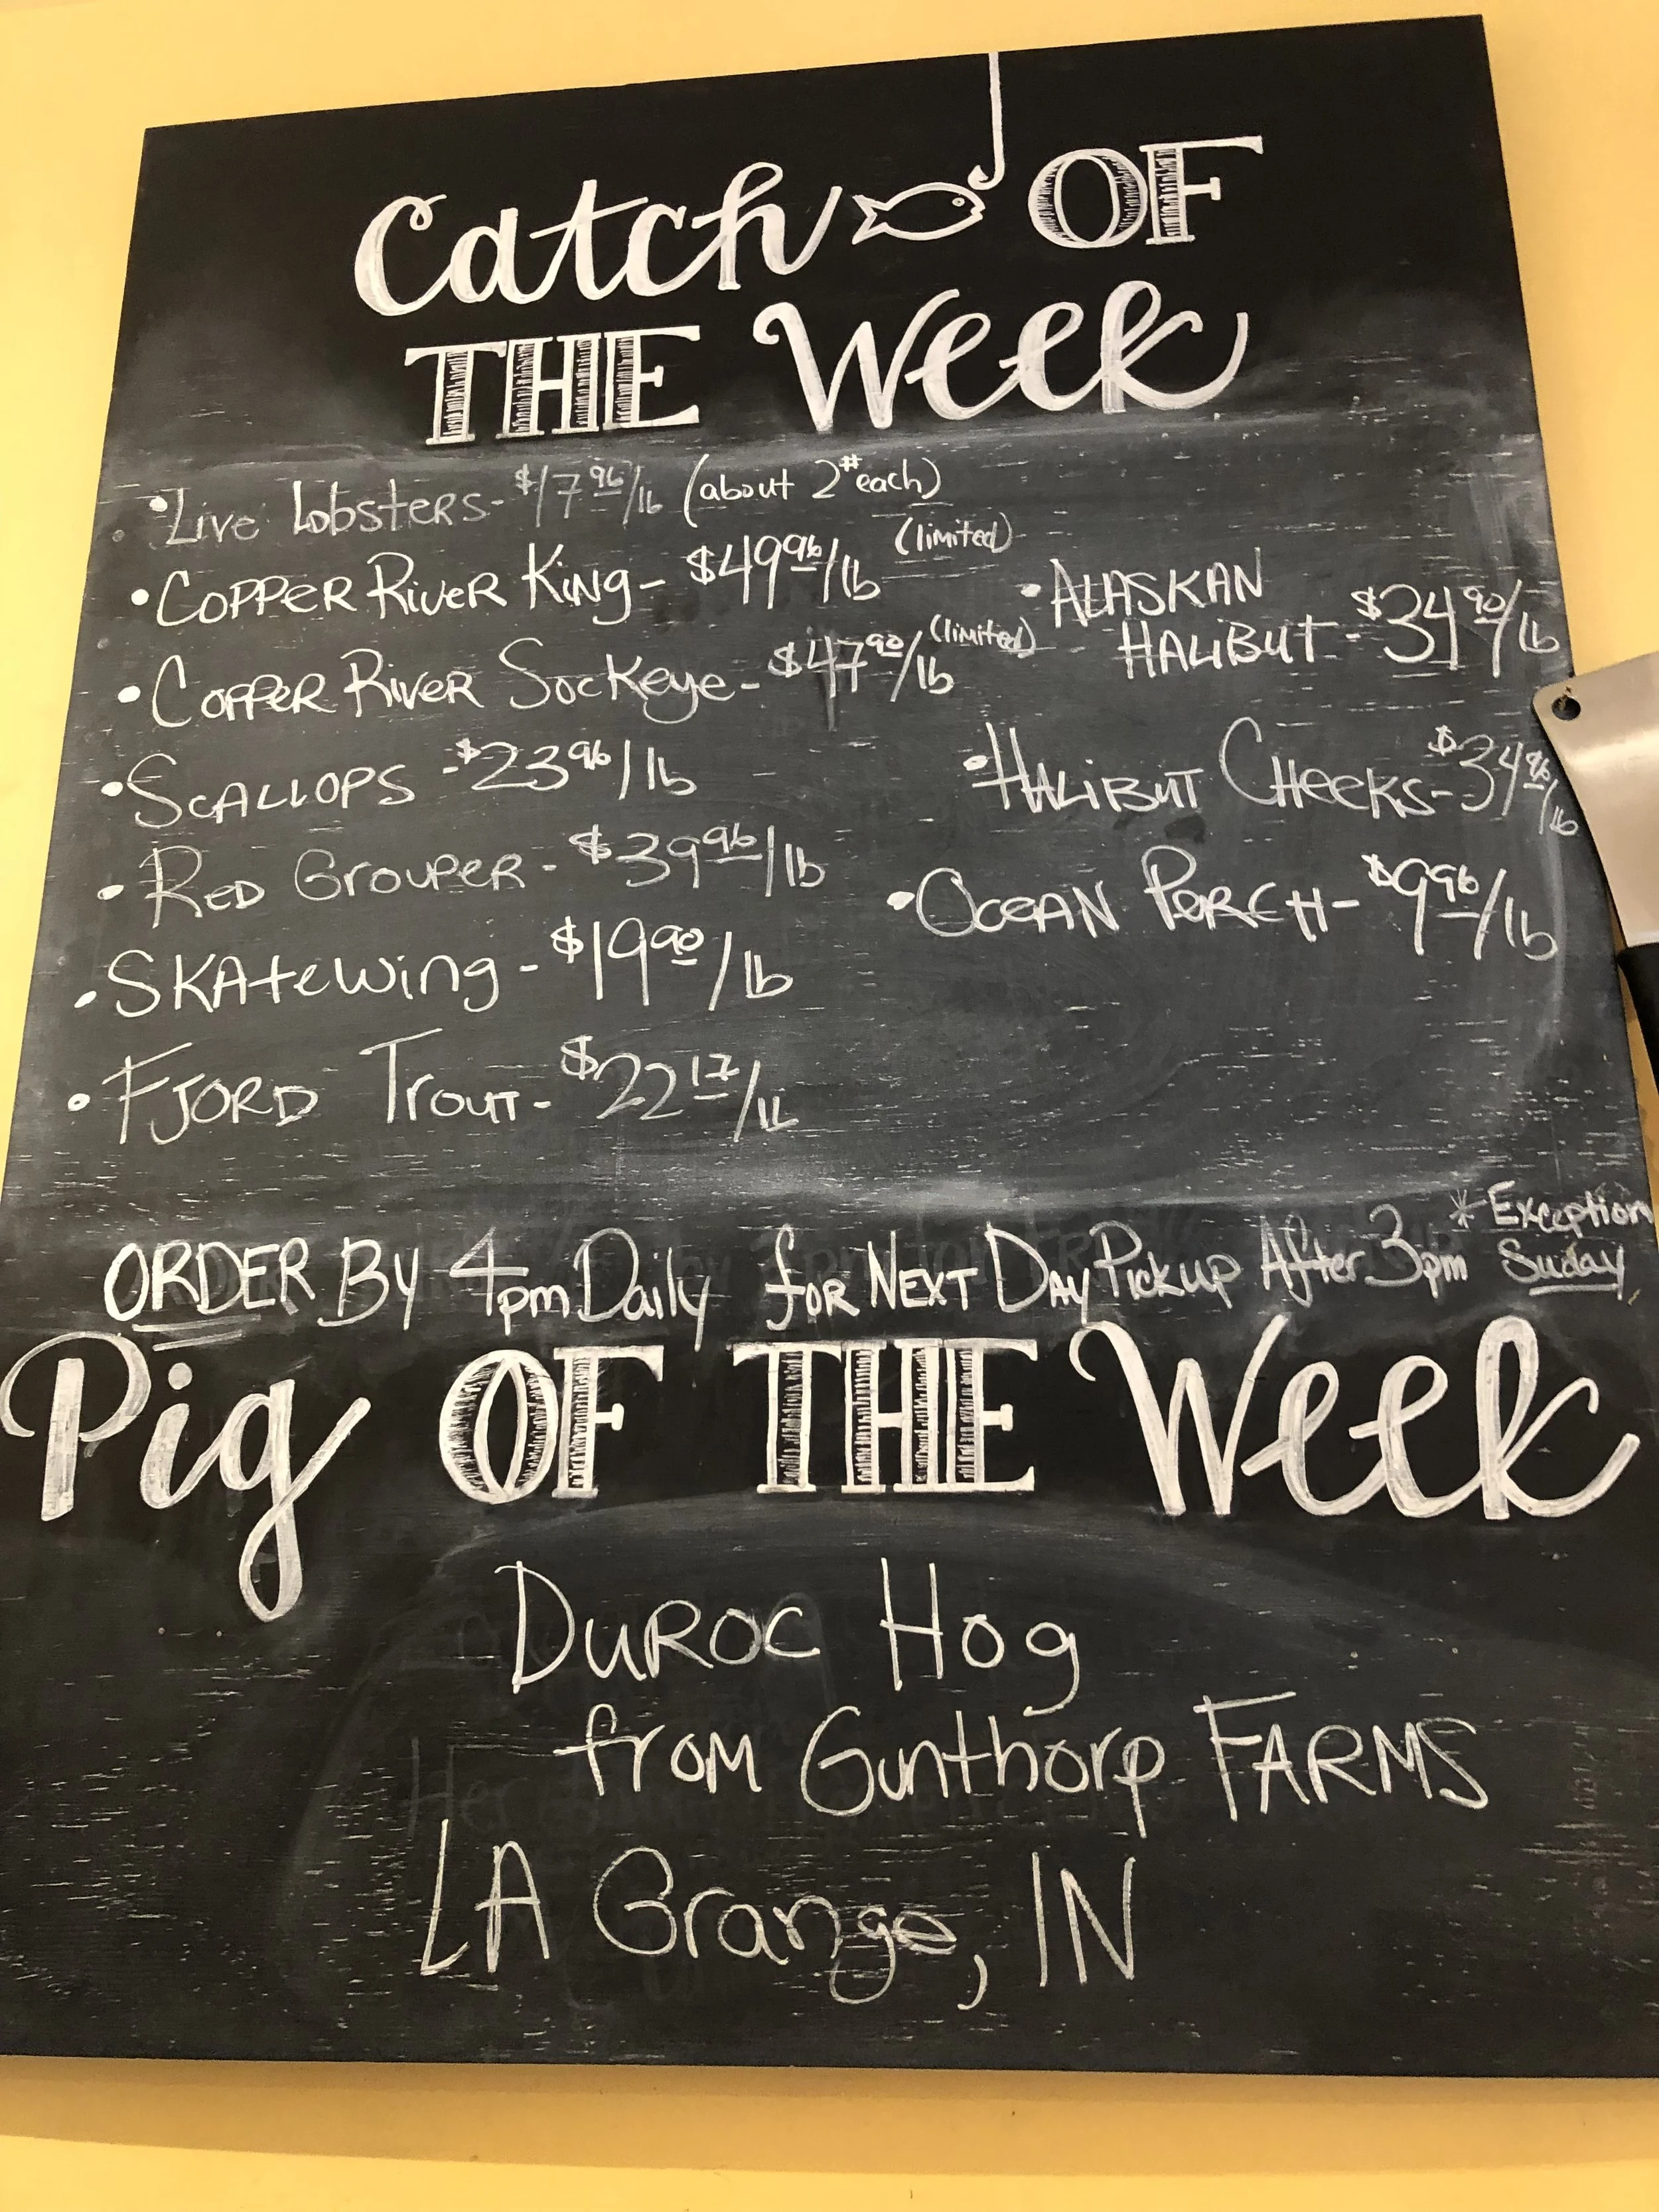 Catch OF
THE Week
• Live Lobsters - $17.96/lb (about 2# each)
• Copper River King - $49.96/lb (limited)
• Copper River Sockeye - $47.90/lb (limited)
• Scallops - $23.96/lb
• Red Grouper - $39.96/lb
• Skatewing - $19.90/lb
• Fjord Trout - $22.17/lb
• Alaskan
Halibut - $34.90/lb
• Halibut Cheeks - $34.96/lb
• Ocean Perch - $9.96/lb
ORDER By 4pm Daily for Next Day Pickup After 3pm
* Exception
Suday
Pig OF THE Week
Duroc Hog
from Gunthorp Farms
LA Grange, IN